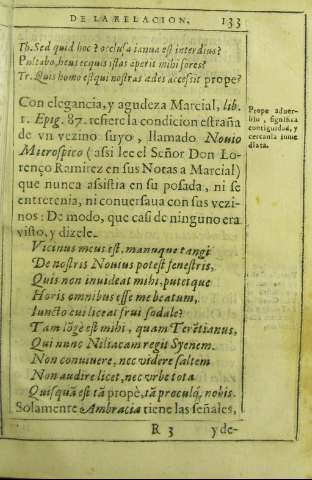 DE LA RELACION. 133
Th. Sed quid hoc? occlusa ianua est interdius?
Pultabo, heus ecquis istas aperit mihi fores?
Tr. Quis homo est qui nostras ædes accessit prope?
Con elegancia, y agudeza Marcial, lib.
1. Epig. 87. refiere la condicion estraña
de vn vezino suyo, llamado Nouio
Microspico (assi lee el Señor Don Lo-
renço Ramirez en sus Notas a Marcial)
que nunca assistia en su posada, ni se
entretenia, ni conuersaua con sus vezi-
nos: De modo, que casi de ninguno era
visto, y dizele.
Prope aduer-
bio, significa
contiguidad, y
cercania inme
diata.
Vicinus meus est, manuque tangi
De nostris Nouius potest fenestris,
Quis non inuideat mihi, putetque
Horis omnibus esse me beatum,
Iuncto cui liceat frui sodale?
Tam lõgè est mihi, quam Terẽtianus,
Qui nunc Niliacam regit Syenem.
Non conuiuere, nec videre saltem
Non audire licet, nec vrbe tota
Quisquã est tã propè, tã proculq́, nobis.
Solamente Ambracia tiene las señales,
R 3 y de-